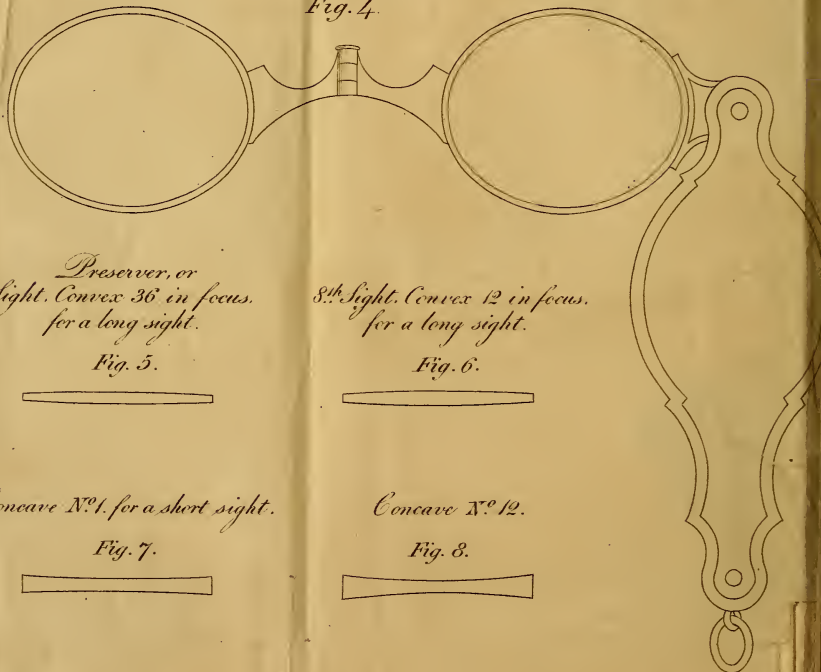 Fig. 4.
Preserver, or
Sight. Convex 36 in focus.
for a long sight.
Fig. 5.
8.th Sight. Convex 12 in focus.
for a long sight.
Fig. 6.
oncave No. 1. for a short sight.
Fig. 7.
Concave No. 12.
Fig. 8.